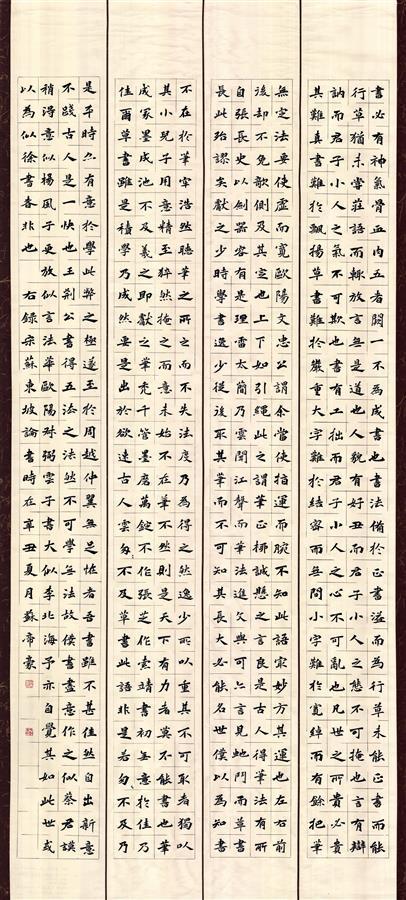 書必有神氣骨血肉五者闕一不為成書也書法備於正書溢而為行草未能正書而能
行草猶未嘗莊語而輒放言無是道也人貌有好丑而君子小人之態不可掩也言有辯
訥而君子小人之氣不可欺也書有工拙而君子小人之心不可亂也凡世之所貴必貴
其難真書難於飄揚草書難於嚴重大字難於結密而無間小字難於寬綽而有餘把筆
無定法要使虛而寬歐陽文忠公謂余當使指運而腕不知此語最妙方其運也左右前
後却不免欹側及其定也上下如引繩此之謂筆正柳誠懸之言良是古人得筆法有所
自張長史以劍器容有是理雷太簡乃雲聞江聲而筆法進文與可亦言見虵鬥而草書
長此殆謬矣獻之少時學書逸少從後取其筆而不可知其長大必能名世僕以為知書
不在於筆牢浩然聽筆之所之而不失法度乃為得之然逸少所以重其不可取者獨以
其小兒子用意精至猝然掩之而意未始不在筆不然則是天下有力者莫不能書也筆
成冢墨成池不及羲之即獻之筆禿千管墨磨萬錠不作張芝作索靖書初無意於佳乃
佳爾草書雖是積學乃成然要是出於欲速古人雲匆匆不及草書此語非是若匆匆不及乃
是平時亦有意於學此弊之極遂至於周越仲翼無足怪者吾書雖不甚佳然自出新意
不踐古人是一快也王荊公書得无法之法然不可學無法故僕書盡意作之似蔡君謨
稍得意似楊風子更放似言法華歐陽叔弼雲子書大似李北海予亦自覺其如此世或
以為似徐書者非也 右録宋蘇東坡論書時在辛丑夏月蘇帝豪